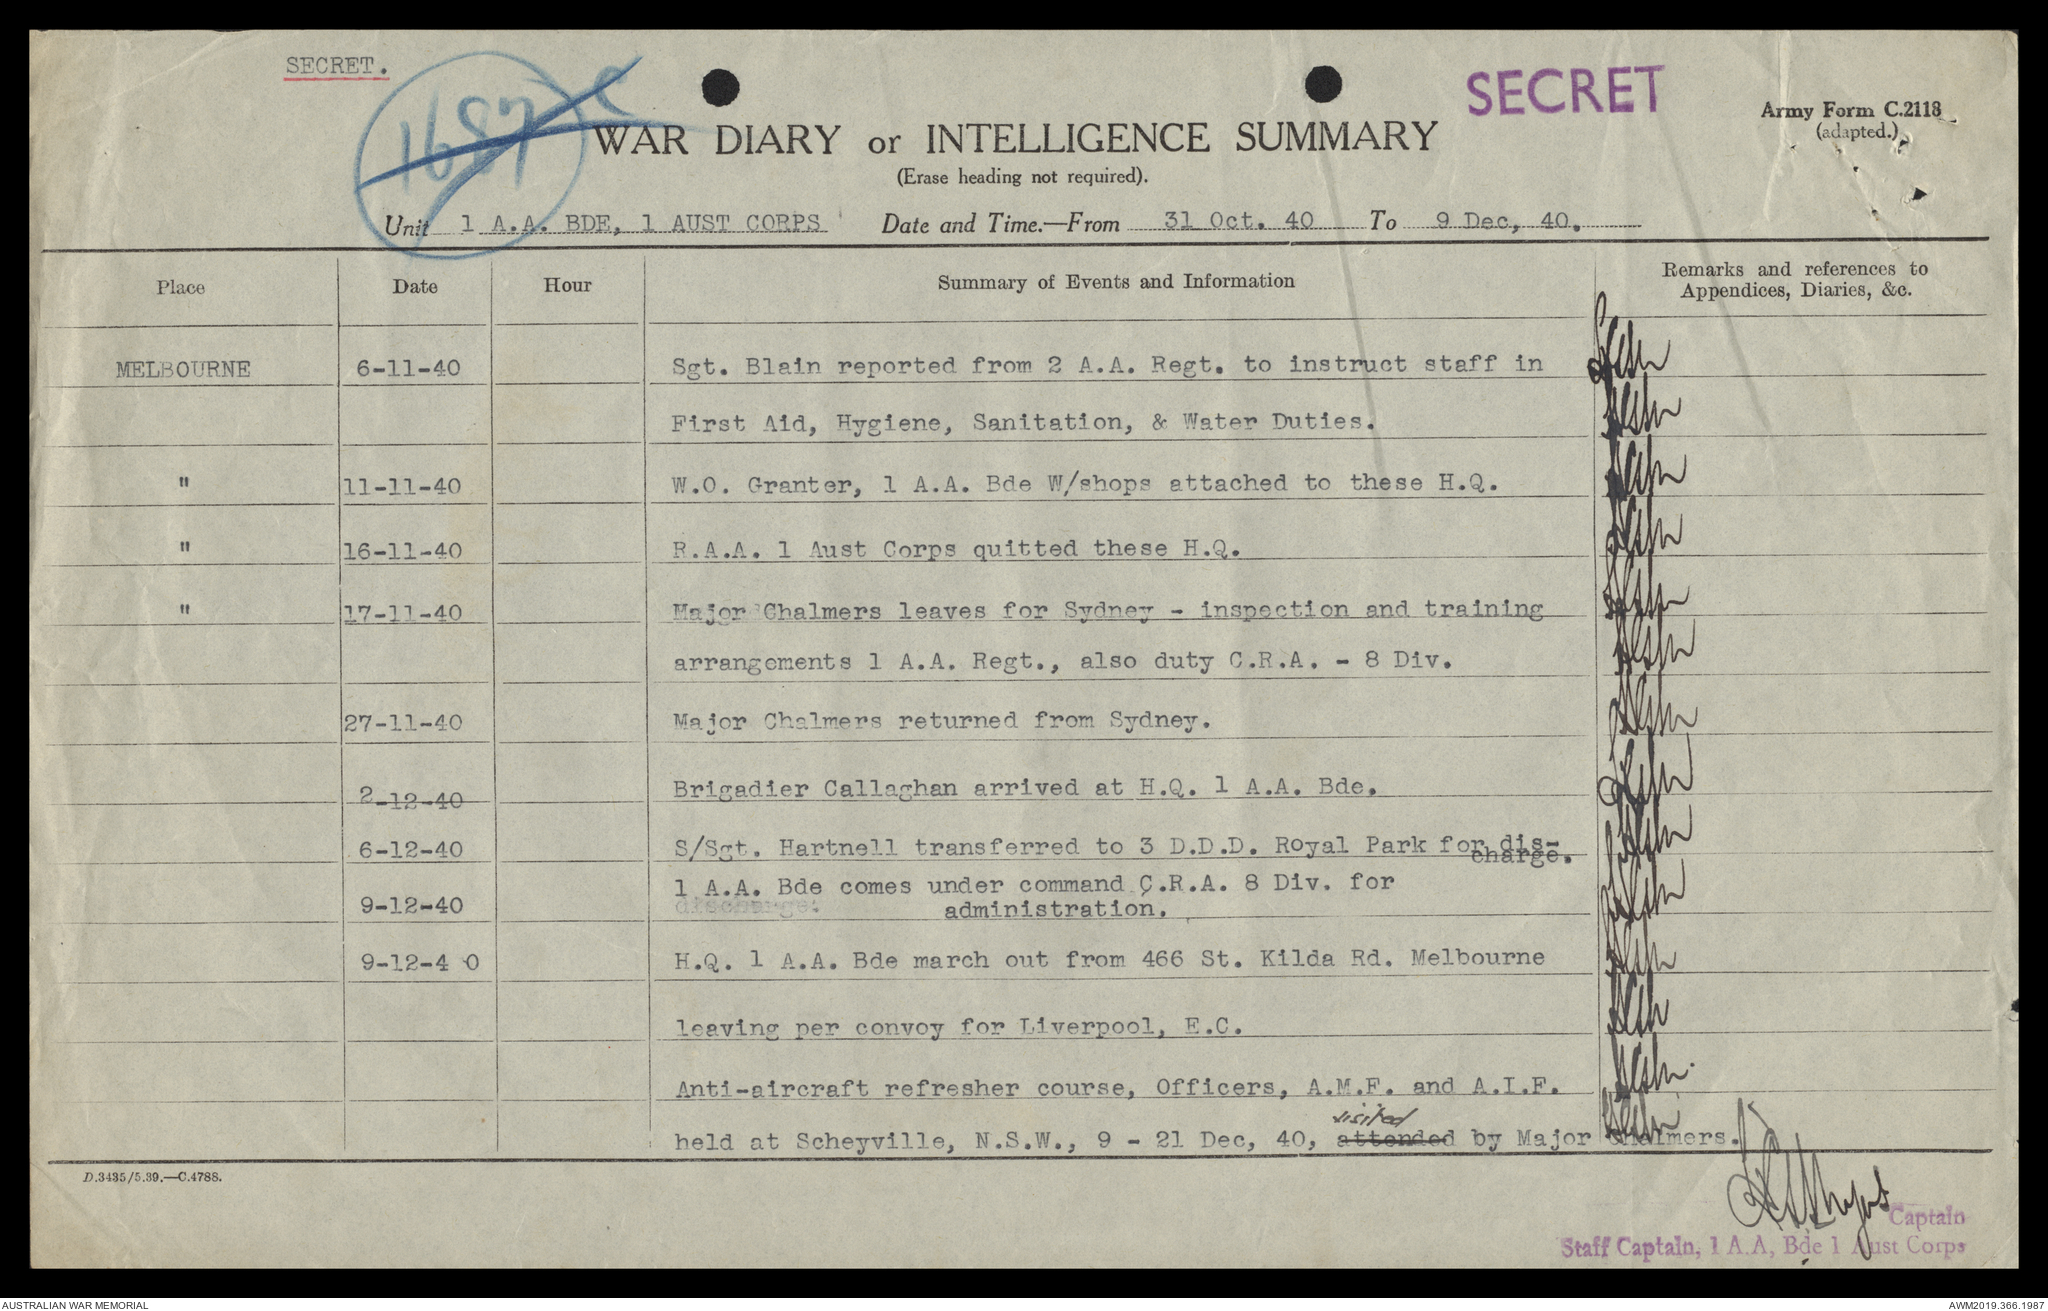 SECRET.
1687
SECRET
Army Form C.2118
(adapted.)
WAR DIARY or INTELLIGENCE SUMMARY
(Erase heading not required).
Unit 1 A.A. BDE, 1 AUST CORPS Date and Time.—From 31 Oct. 40 To 9 Dec, 40.
Place Date Hour Summary of Events and Information Remarks and references to
Appendices, Diaries, &c.
MELBOURNE 6-11-40 Sgt. Blain reported from 2 A.A. Regt. to instruct staff in
First Aid, Hygiene, Sanitation, & Water Duties.
" 11-11-40 W.O. Granter, 1 A.A. Bde W/shops attached to these H.Q.
" 16-11-40 R.A.A. 1 Aust Corps quitted these H.Q.
" 17-11-40 Major Chalmers leaves for Sydney - inspection and training
arrangements 1 A.A. Regt., also duty C.R.A. - 8 Div.
27-11-40 Major Chalmers returned from Sydney.
2-12-40 Brigadier Callaghan arrived at H.Q. 1 A.A. Bde.
6-12-40 S/Sgt. Hartnell transferred to 3 D.D.D. Royal Park for dis-
charge.
9-12-40 1 A.A. Bde comes under command C.R.A. 8 Div. for
discharge. administration.
9-12-4 0 H.Q. 1 A.A. Bde march out from 466 St. Kilda Rd. Melbourne
leaving per convoy for Liverpool, E.C.
Anti-aircraft refresher course, Officers, A.M.F. and A.I.F.
visited
held at Scheyville, N.S.W., 9 - 21 Dec, 40, attended by Major Chalmers.
D.3435/5.39.—C.4788.
Captain
Staff Captain, 1 A.A, Bde 1 Aust Corps
AUSTRALIAN WAR MEMORIAL AWM2019.366.1987